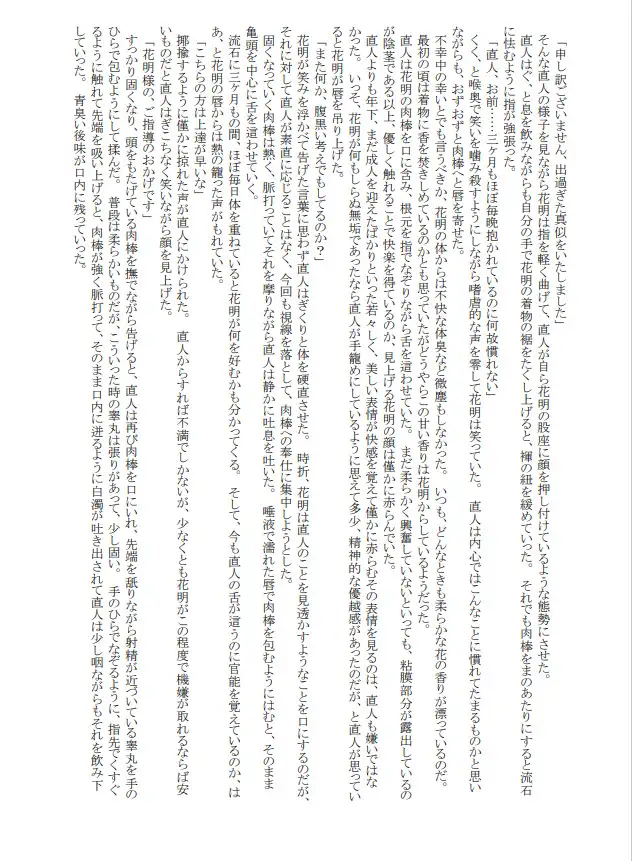 「申し訳ございません、出過ぎた真似をいたしました」
そんな直人の様子を見ながら花明は指を軽く曲げて、直人が自ら花明の股座に顔を押し付けているような態勢にさせた。
直人はぐ、と息を飲みながらも自分の手で花明の着物の裾をたくし上げると、褌の紐を緩めていった。　それでも肉棒をまのあたりにすると流石
に怯むように指が強張った。
「直人、お前……三ヶ月もほぼ毎晩抱かれているのに何故慣れない」
くく、と喉奥で笑いを噛み殺すようにしながら嗜虐的な声を零して花明は笑っていた。　直人は内心ではこんなことに慣れてたまるものかと思い
ながらも、おずおずと肉棒へと唇を寄せた。
不幸中の幸いとでも言うべきか、花明の体からは不快な体臭など微塵もしなかった。　いつも、どんなときも柔らかな花の香りが漂っているのだ。
最初の頃は着物に香を焚きしめているのかとも思っていたがどうやらこの甘い香りは花明からしているようだった。
直人は花明の肉棒を口に含み、根元を指でなぞりながら舌を這わせていた。　まだ柔らかく興奮していないといっても、粘膜部分が露出しているの
が陰茎である以上、優しく触れることで快楽を得ているのか、見上げる花明の顔は僅かに赤らんでいた。
直人よりも年下、まだ成人を迎えたばかりといった若々しく、美しい表情が快感を覚えて僅かに赤らむその表情を見るのは、直人も嫌いではな
かった。　いっそ、花明が何もしらぬ無垢であったなら直人が手籠めにしているように思えて多少、精神的な優越感があったのだが、と直人が思ってい
ると花明が唇を吊り上げた。
「また何か、腹黒い考えでもしてるのか？」
花明が笑みを浮かべて告げた言葉に思わず直人はぎくりと体を硬直させた。　時折、花明は直人のことを見透かすようなことを口にするのだが、
それに対して直人が素直に応じることはなく、今回も視線を落として、肉棒への奉仕に集中しようとした。
固くなっていく肉棒は熱く、脈打っていてそれを摩りながら直人は静かに吐息を吐いた。　唾液で濡れた唇で肉棒を包むようにはむと、そのまま
亀頭を中心に舌を這わせていく。
流石に三ヶ月もの間、ほぼ毎日体を重ねていると花明が何を好むかも分かってくる。　そして、今も直人の舌が這うのに官能を覚えているのか、は
あ、と花明の唇からは熱の籠った声がもれていた。
「こちらの方は上達が早いな」
揶揄するように僅かに掠れた声が直人にかけられた。　直人からすれば不満でしかないが、少なくとも花明がこの程度で機嫌が取れるならば安
いものだと直人はぎこちなく笑いながら顔を見上げた。
「花明様の、ご指導のおかげです」
すっかり固くなり、頭をもたげている肉棒を撫でながら告げると、直人は再び肉棒を口にいれ、先端を舐りながら射精が近づいている睾丸を手の
ひらで包むようにして揉んだ。　普段は柔らかいものだが、こういった時の睾丸は張りがあって、少し固い。　手のひらでなぞるように、指先でくすぐ
るように触れて先端を吸い上げると、肉棒が強く脈打って、そのまま口内に迸るように白濁が吐き出されて直人は少し咽ながらもそれを飲み下
していった。　青臭い後味が口内に残っていった。